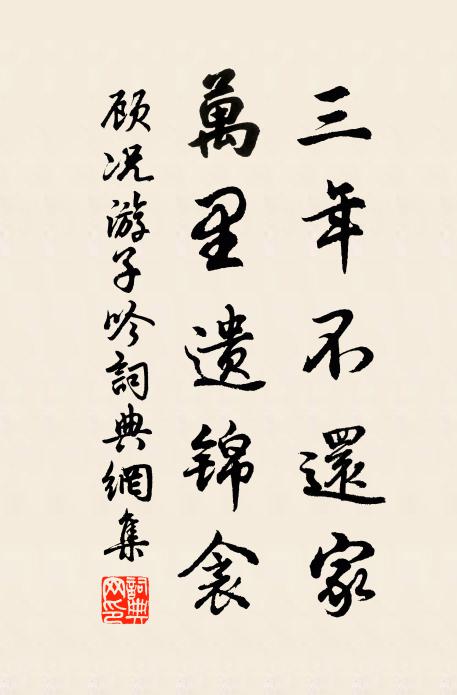 三年不還家
萬里遺錦衾
顧况游子吟詞典網集
詞典网印